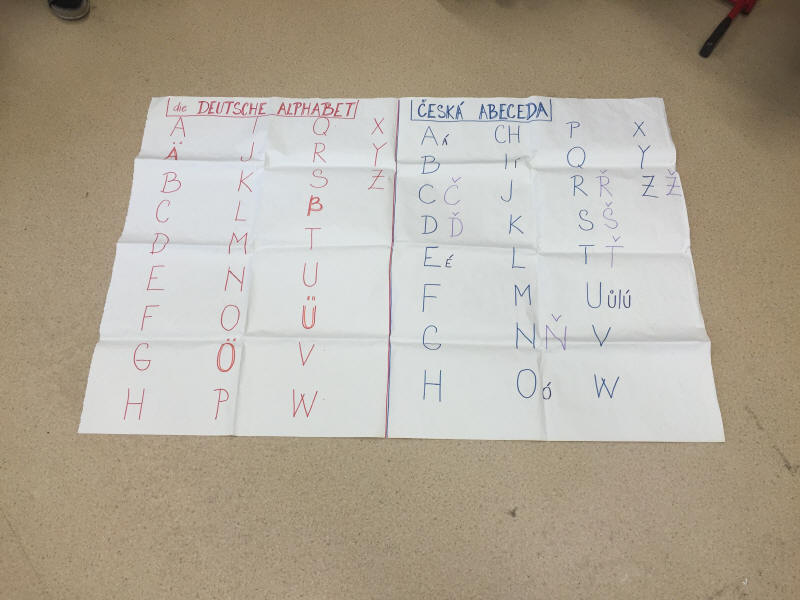 die DEUTSCHE ALPHABET
A I Q X
Ä J R Y
B K S Z
C L ß
D M T
E N U
F O Ü
G Ö V
H P W
ČESKÁ ABECEDA
A á CH P X
B I í Q Y
C Č J R Ř Z Ž
D Ď K S Š
E é L T Ť
F M U ů|ú
G N Ň V
H O ó W